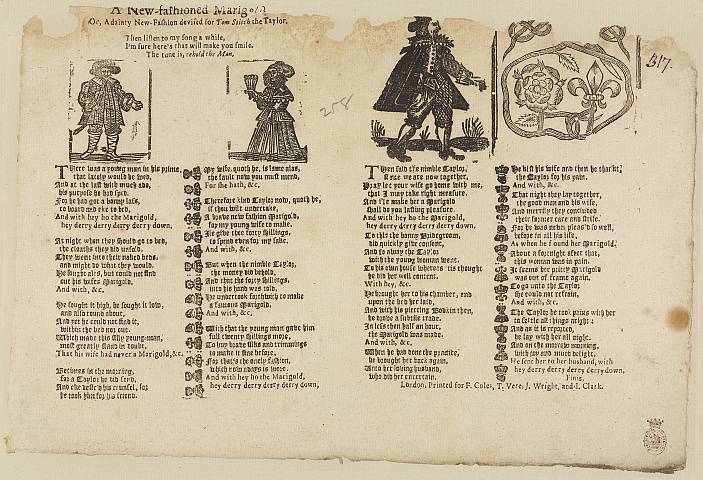 A New-fashioned Marigold
Or, A dainty New-Fashion devised for Tom Stitch the Taylor.
Then listen to my song a while,
I'm sure here's that will make you smile.
The tune is, behold the Man.
258
317.
There was a young man in his prime,
that lately would be wed,
And at the last with much ado,
his purpose he had sped.
For he had got a bonny lass,
to board and eke to bed,
And with hey ho the Marigold,
hey derry derry derry derry down.
At night when they should go to bed,
the cloaths they did unfold.
They went into their naked beds,
and might do what they would.
He sought also, but could not find
out his wifes Marigold,
And with, &c.
He sought it high, he sought it low,
and also round about,
And yet he could not find it,
within the bed nor out.
Which made this silly young-man,
most greatly stand in doubt,
That his wife had never a Marigold, &c.
Betimes in the morning,
for a Taylor he did send,
And eke besire his counsel, for
he took him for his friend.
My wife, quoth he, is lame alas,
the fault now you must mend,
For she hath, &c.
Therefore kind Taylor now, quoth he,
if thou wilt undertake,
A brave new fashion Marigold,
for my young wife to make.
Ile give thee forty shillings,
to spend even for my sake.
And with, &c.
But when the nimble Taylor,
the money did behold,
And that the forty shillings,
into his hand was told,
He undertook forthwith to make
a famous Marigold,
And with, &c.
With that the young man gave him
full twenty shillings more,
To buy brave silks and trimmings
to make it fine before.
For that's the onely fashion,
which now adays is wore.
And with hey ho the Marigold,
hey derry derry derry derry down,
Then said the nimble Taylor,
since we are now together,
Pray let your wife go home with me,
that I may take right measure.
And I'le make her a Marigold
shall do you lasting pleasure.
And with hey ho the Marigold,
hey derry derry derry derry down.
To this the bonny Bridegroom,
did quickly give consent,
And so away the Taylor
with the young woman went.
To his own house whereas 'tis thought
he did her well content.
With hey, &c.
He brought her to his chamber, and
upon the bed her laid,
And with his piercing Bodkin then,
he drove a subtile trade.
In less then half an hour,
the Marigold was made.
And with, &c.
When he had done the practice,
he brought her back again,
Unto her loving husband,
who did her entertain.
He kist his wife and then he thankt,
the Taylor for his pain.
And with, &c.
That night they lay together,
the good man and his wife,
And merrily they concluded
their former care and strife.
Nor he was never pleas'd so well,
before in all his life,
As when he found her Marigold,
About a fortnight after that,
this woman was in pain.
It seems her pritty Marigold
was out of frame again.
To go unto the Taylor
she could not refrain,
And with, &c.
The Taylor he took pains with her
to settle all things aright:
And as it is reported,
he lay with her all night.
And on the morrow morning,
with joy and much delight.
He sent her to her husband, with
hey derry derry derry derry down.
Finis.
London, Printed for F. Coles, T. Vere, J. Wright, and I. Clark.